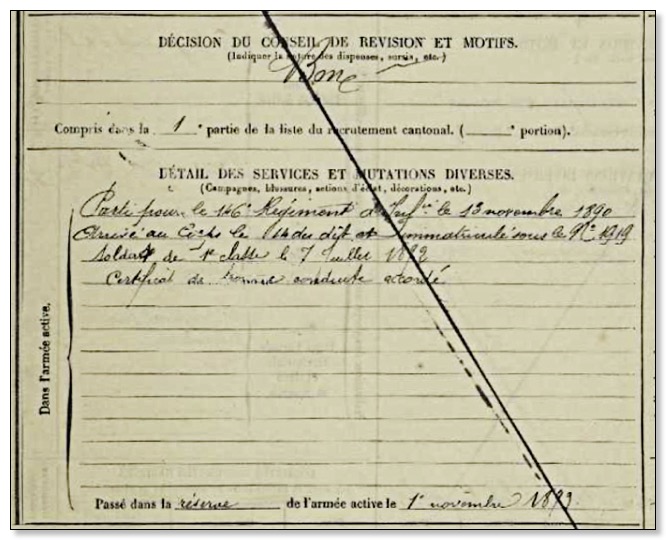 DÉCISION DU CONSEIL DE REVISION ET MOTIFS.
(Indiquer la nature des dispenses, sursis, etc.)
Bon
Compris dans la 1e partie de la liste du recrutement cantonal. ( e portion).
DÉTAIL DES SERVICES ET MUTATIONS DIVERSES.
(Campagnes, blessures, actions d'éclat, décorations, etc.)
Parti pour le 146e Régiment d'Infie le 13 novembre 1890
Arrivé au Corps le 14 du dit et immatriculé sous le No 1919
Soldat de 1e classe le 7 Juillet 1892
Certificat de bonne conduite accordé
Dans l'armée active.
Passé dans la réserve de l'armée active le 1er novembre 1893.